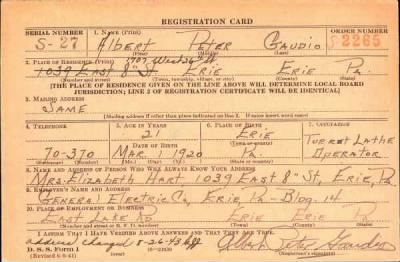 REGISTRATION CARD
SERIAL NUMBER 1. NAME (Print) ORDER NUMBER
S-27 Albert Peter Gaudio S-2265
(First) (Middle) (Last)
2. PLACE OF RESIDENCE (Print)
1039 EAST 8th ST. ERIE ERIE Pa.
(Number and street) (Town, township, village, or city) (County) (State)
[THE PLACE OF RESIDENCE GIVEN ON THE LINE ABOVE WILL DETERMINE LOCAL BOARD
JURISDICTION; LINE 2 OF REGISTRATION CERTIFICATE WILL BE IDENTICAL]
3. MAILING ADDRESS
SAME
[Mailing address if other than place indicated on line 2. If same insert word same]
4. TELEPHONE 5. AGE IN YEARS 6. PLACE OF BIRTH 7. OCCUPATION
21 ERIE TURRET LATHE
DATE OF BIRTH
70-370 MAR. 1 1920 Pa. OPERATOR
8. NAME AND ADDRESS OF PERSON WHO WILL ALWAYS KNOW YOUR ADDRESS
MRS. ELIZABETH HART 1039 EAST 8th ST, ERIE, Pa
9. EMPLOYER'S NAME AND ADDRESS
GENERAL ELECTRIC Co, ERIE, Pa - Bldg. 14
10. PLACE OF EMPLOYMENT OR BUSINESS
EAST LAKE RD ERIE ERIE Pa
(Number and street or R. F. D. number) (Town) (County) (State)
I AFFIRM THAT I HAVE VERIFIED ABOVE ANSWERS AND THAT THEY ARE TRUE.
address changed 8-26-43
D. S. S. Form 1 Albert Peter Gaudio